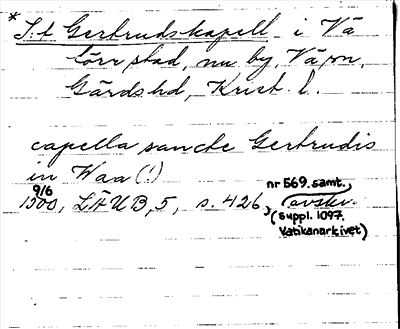 * S:t Gertrudskapell i Vä
förr stad, nu by, Vä sn,
Gärds hd, Krist. l.
capella sancte Gertrudis
in Waa (!)
9/6
1500, LÄUB, 5, s. 426, nr 569. samt.
avskr.
(suppl. 1097.
Vatikanarkivet)